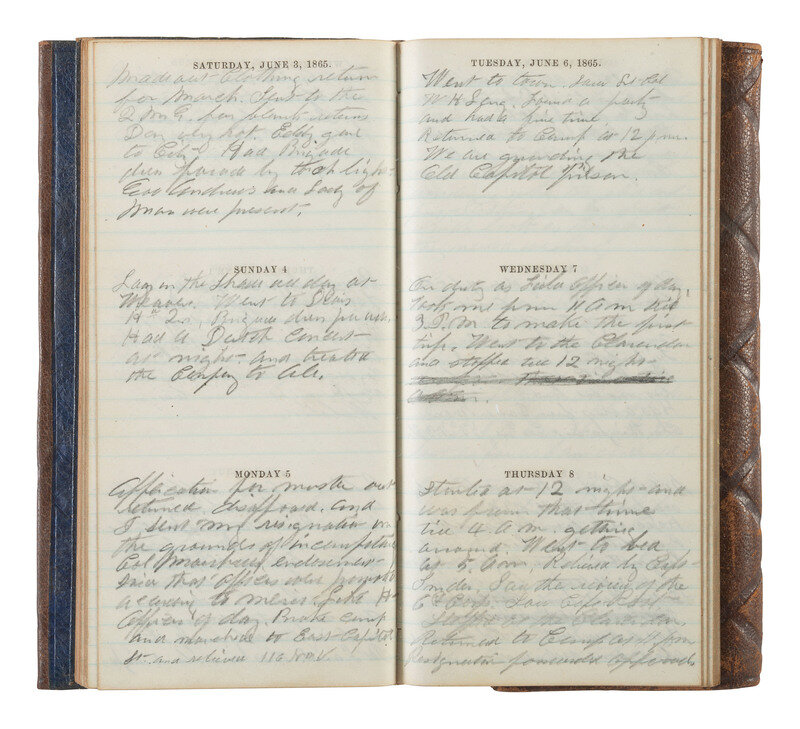 SATURDAY, JUNE 3, 1865.
Made out Clothing return
for March. Sent to the
Q M G. for blank returns
Day very hot. Eddy gone
to City. Had Brigade
dress parade by torch light
Gov Andrews and Lady of
were present.
SUNDAY 4
Lay in the shade all day at
Went to
Brigade dress parade.
Had a Dutch Concert
at night and treated
the Company to Ale.
MONDAY 5
Application for muster out
returned disapproved. And
I sent my resignation on
the grounds of incompetency
Col endorsement
that officers were promoted
according to merit
Officer of day. Broke camp
and marched to East Capitol
St. and relieved
TUESDAY, JUNE 6, 1865.
Went to town. Saw
W H Found a party
and had a fine time
Returned to Camp at 12 p.m.
We are guarding the
Old Capitol Prison.
WEDNESDAY 7
On duty as Field Officer of day,
from A m till
3 P.M. to make the first
trip. Went to the Clarendon
and stopped till 12 night
THURSDAY 8
Started at 12 night and
was from that time
till 4 A m getting
around. Went to bed
at 5 A m, Relieved by Capt
Snyder, Saw the review of the
6th Corp. Saw
Stopped at the Clarendon
Returned to Camp at 11 p m
Resignation forwarded approved.